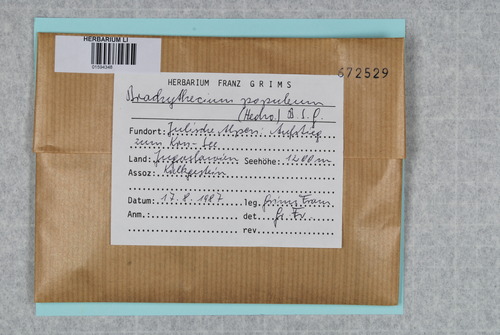 HERBARIUM LI
01594348
672529
HERBARIUM FRANZ GRIMS
Brachythecium populeum
(Hedw.) B.S.G.
Fundort: Julische Alpen: Aufstieg
zum Krn-See
Land: Jugoslawien Seehöhe: 1200 m
Assoz: Kalkgestein
Datum: 17.8.1987 leg. Grims Franz
Anm.: det. Gr. Fr.
rev.